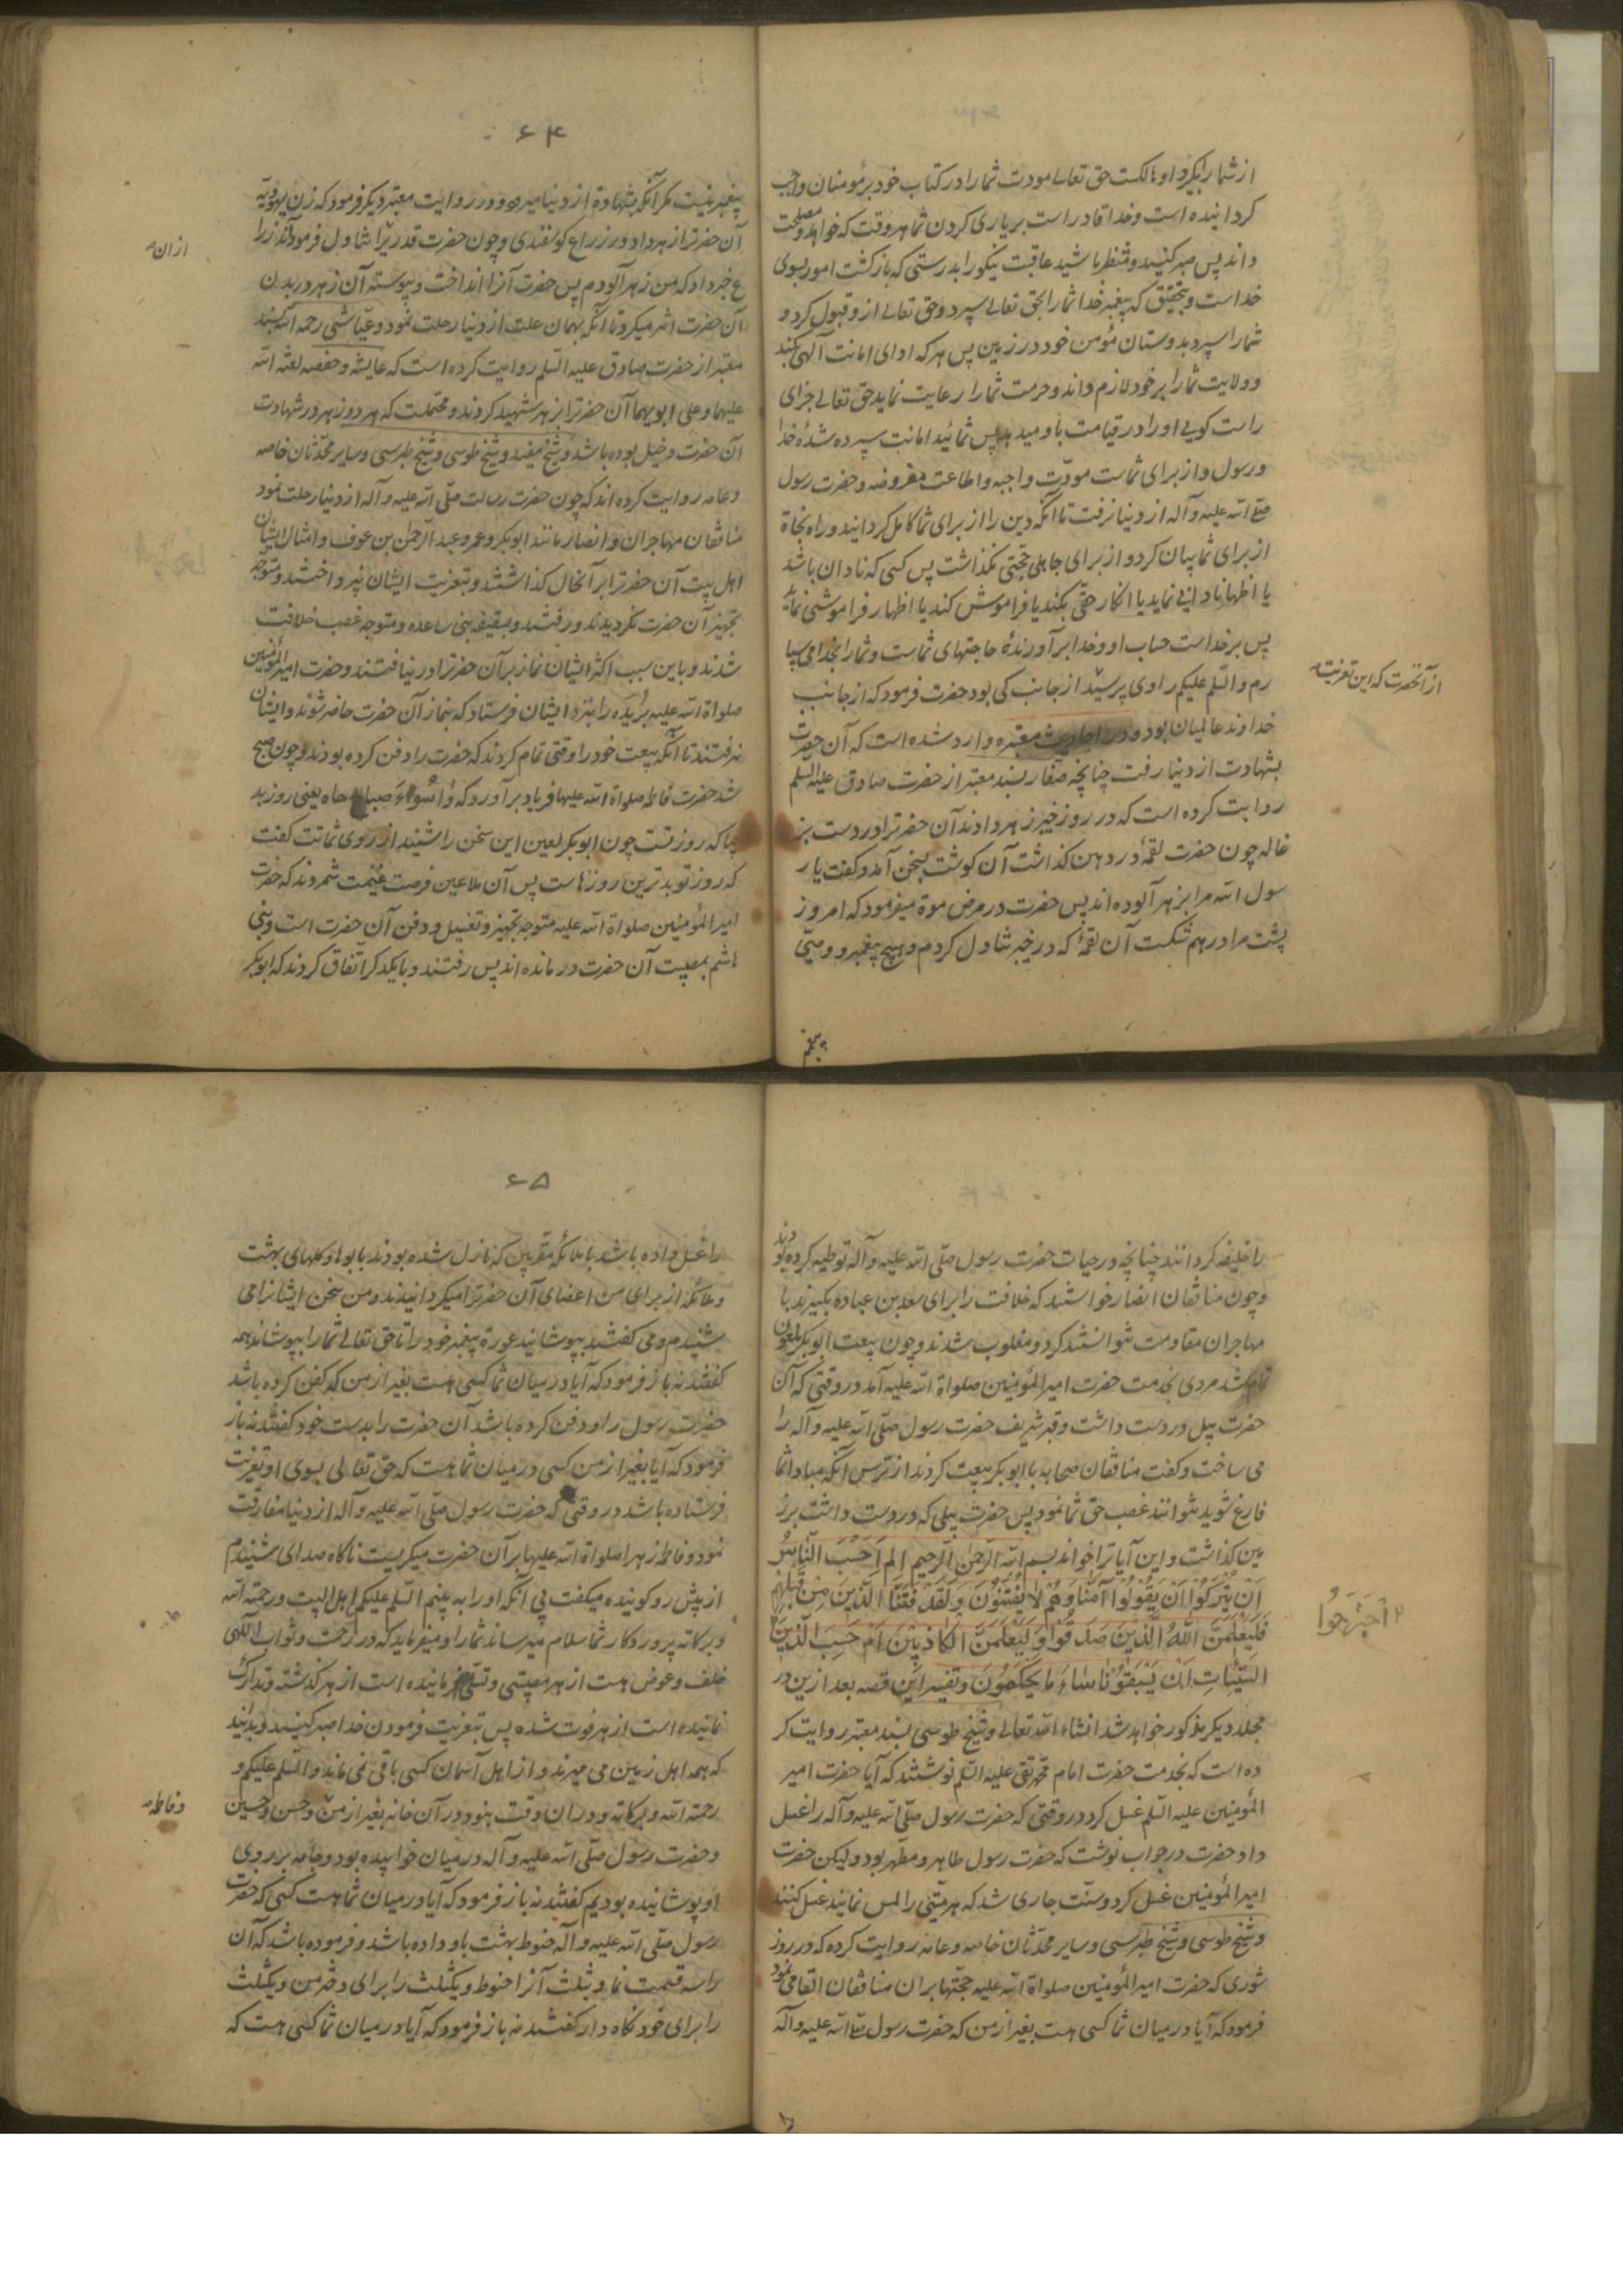 از شما را بگیرد او هالکست حق تعالی مودت شما را در کتاب خود بر مؤمنان واجب
کردانیده است و خدا قادر است بر یاری کردن شما هر وقت که خواهد و مصلحت
داند پس صبر کنید و منتظر باشید عاقبت نیکو را بدرستی که بازکشت امور بسوی
خداست و بتحقیق که پیغمبر خدا شما را بحق تعالی سپرد و حق تعالی از و قبول کرد و
شما را سپرد بدوستان مؤمن خود در زمین پس هر که ادای امانت آلهی بکند
و ولایت شما را بر خود لازم داند و حرمت شما را رعایت نماید حق تعالی جزای
راست کویی او را در قیامت باو میدهد پس شمائید امانت سپرده شدهٔ خدا
و رسول و از برای شماست مودّت واجبه و اطاعت مفروضه و حضرت رسول
صلی الله علیه و آله از دنیا نرفت تا آنکه دین را از برای شما کامل کردانید و راه نجاة
از برای شما بیان کرد و از برای جاهلی حجّتی نکذاشت پس کسی که نادان باشد
یا اظهار نادانی نماید یا انکار حق بکند یا فراموش کند یا اظهار فراموشی نماید
پس بر خداست حساب او و خدا برآورندهٔ حاجتهای شماست و شما را بخدا می سپا
رم و السّلم علیکم راوی پرسید از جانب کی بود حضرت فرمود که از جانب
از آنحضرت که این تعزیت
خداوند عالمیان بود و در احادیث معتبره وارد شده است که آن حضرت
بشهادت از دنیا رفت چنانچه صفار بسند معتبر از حضرت صادق علیه السلم
روایت کرده است که در روز خیبر زهر دادند آن حضرترا در دست بز
غاله چون حضرت لقمهٔ در دهن کذاشت آن کوشت بسخن آمد و کفت یا ر
سول الله مرا بزهر آلوده اند پس حضرت در مرض موة میفرمود که امروز
پشت مرا در هم شکست آن لقمهٔ که در خیبر تناول کردم و هیچ پیغمبر و وصیّی
پیغمبر
۶۴
پیغمبر نیست مکر آنکه بشهادة از دنیا میرود و در روایت معتبر دیکر فرمود که زن یهودیّه
آن حضرترا زهر داد در ذراع کوسفندی و چون حضرت قدریرا تناول فرمود آن ذرا
از ان
ع خبر داد که من زهر آلودم پس حضرت آنرا انداخت و پیوسته آن زهر در بدن
آن حضرت اثر میکرد تا آنکه بهمان علت از دنیا رحلت نمود و عیّاشی رحمه الله بسند
معتبر از حضرت صادق علیه السّلم روایت کرده است که عایشه و حفصه لعنه الله
علیهما و علی ابویهما آن حضرترا بزهر شهید کردند و محتملست که هر دو زهر در شهادت
آن حضرت دخیل بوده باشد و شیخ مفید و شیخ طوسی و شیخ طبرسی و سایر محدّثان خاصه
و عامه روایت کرده اند که چون حضرت رسالت صلّی الله علیه و آله از دنیا رحلت نمود
منافقان مهاجران و انصار مانند ابوبکر و عمر و عبد الرّحمن بن عوف و امثال ایشان
اهل بیت آن حضرترا بر آنحال کذاشتند و بتعزیت ایشان نپرداختند و متوجه
تجهیز آن حضرت نکردیدند و رفتند و بسقیفه بنی ساعده و متوجه غصب خلافت
شدند و باین سبب اکثر ایشان نماز بر آن حضرترا در نیافتند و حضرت امیر المؤمنین
صلواة الله علیه بُرَیْدَه را بنزد ایشان فرستاد که بنماز آن حضرت حاضر شوند و ایشان
نرفتند تا آنکه بیعت خود را وقتی تمام کردند که حضرت را دفن کرده بودند و چون صبح
شد حضرت فاطمه صلواة الله علیها فریاد برآورد که وا سُوأءَ صباحاه یعنی روز بد
بیا که روز تست چون ابوبکر لعین این سخن را شنید از روی شماتت کفت
که روز تو بدترین روزهاست پس آن ملاعین فرصت غنیمت شمردند که حضرت
امیر المؤمنین صلواة الله علیه متوجه تجهیز و تغسیل و دفن آن حضرت است و بنی
هاشم بمصیبت آن حضرت درمانده اند پس رفتند و با یکدکر اتّفاق کردند که ابوبکر
را خلیفه کردانند چنانچه در حیات حضرت رسول صلّی الله علیه و آله توطیه کرده بودند
و چون منافقان انصار خواستند که خلافت را برای سعد بن عباده بکیرند با
مهاجران مقاومت نتوانستند کرد و مغلوب شدند و چون بیعت ابوبکر ملعون
تمام شد مردی بخدمت حضرت امیر المؤمنین صلواة الله علیه آمد در وقتی که آن
حضرت بیل در دست داشت و قبر شریف حضرت رسول صلّی الله علیه و آله را
می ساخت و کفت منافقان صحابه با ابوبکر بیعت کردند از ترس آنکه مبادا شما
فارغ شوید نتوانند غصب حق شما نمود پس حضرت بیلی که در دست داشت بر ز
مین کذاشت و این آیاترا خواند بسم الله الرّحمن الرّحیم الم اَحَسِبَ النَّاسُ
اَنْ یُتْرَکُوا اَنْ یَقُولُوا آمَنّا وَ هُمْ لا یُفْتَنُونَ وَ لَقَدْ فَتَنَّا الَّذینَ مِنْ قَبْلِهِمْ
فَلَیَعْلَمَنَّ اللهُ الَّذینَ صَدَقُوا وَ لَیَعْلَمَنَّ الکاذِبینَ اَمْ حَسِبَ الَّذینَ
اجْتَرَحُوا
السَّیِّئاتِ اَنْ یَسْبَقُونا ساءَ ما یَحْکُمُونَ و تفسیر این قصه بعد ازین در
مجلد دیکر مذکور خواهد شد انشاء الله تعالی و شیخ طوسی بسند معتبر روایت کر
ده است که بخدمت حضرت امام محمّد تقی علیه السّلم نوشتند که آیا حضرت امیر
المؤمنین علیه السّلم غسل کرد در وقتی که حضرت رسول صلّی الله علیه و آله را غسل
داد حضرت در جواب نوشت که حضرت رسول طاهر و مطهّر بود و لیکن حضرت
امیر المؤمنین غسل کرد و سنّت جاری شد که هر میّتی را لمس نمایند غسل کنند
و شیخ طوسی و شیخ طبرسی و سایر محدّثان خاصه و عامه روایت کرده که در روز
شوری که حضرت امیر المؤمنین صلواة الله علیه حجّتها بر ان منافقان القا می نمود
فرمود که آیا در میان شما کسی هست بغیر از من که حضرت رسول صلی الله علیه و آله
را
۶۵
را غسل داده باشد با ملائکهٔ مقرّبین که نازل شده بودند با بوها و کلهای بهشت
و ملائکه از برای من اعضای آن حضرترا میکردانیدند و من سخن ایشانرا می
شنیدم و می کفتند بپوشانید عورة پیغمبر خود را تا حق تعالی شما را بپوشاند همه
کفتند نه باز فرمود که آیا در میان شما کسی هست بغیر از من که کفن کرده باشد
حضرت رسول را و دفن کرده باشد آن حضرت را بدست خود کفتند نه باز
فرمود که آیا بغیر از من کسی در میان شما هست که حق تعالی بسوی او تعزیت
فرستاده باشد در وقتی که حضرت رسول صلّی الله علیه و آله از دنیا مفارقت
نمود و فاطمه زهرا صلواة الله علیها بر آن حضرت میکریست ناکاه صدای شنیدم
از پیش رو کوینده میکفت بی آنکه او را به بینم السّلم علیکم اهل البیت و رحمة الله
و برکاته پروردکار شما سلام میرساند شما را و میفرماید که در رحمت و ثواب آلهی
خلف و عوض هست از هر مصیبتی و تسلّی فرماینده است از هر کذشته و تدارک
نماینده است از هر فوت شده پس بتعزیت فرمودن خدا صبر کنید و بدانید
که همه اهل زمین می میرند و از اهل آسمان کسی باقی نمی ماند و السّلم علیکم و
رحمة الله و برکاته و در ان وقت نبود در آن خانه بغیر از من و حسن و حسین
و فاطمه
و حضرت رسول صلّی الله علیه و آله در میان خوابیده بود و جامه بر روی
او پوشانیده بودیم کفتند نه باز فرمود که آیا در میان شما هست کسی که حضرت
رسول صلّی الله علیه و آله حنوط بهشت باو داده باشد و فرموده باشد که آن
را سه قسمت نما و ثلث آنرا حنوط و یکثلث را برای دختر من و یکثلث
را برای خود نکاه دار کفتند نه باز فرمود که آیا در میان شما کسی هست که